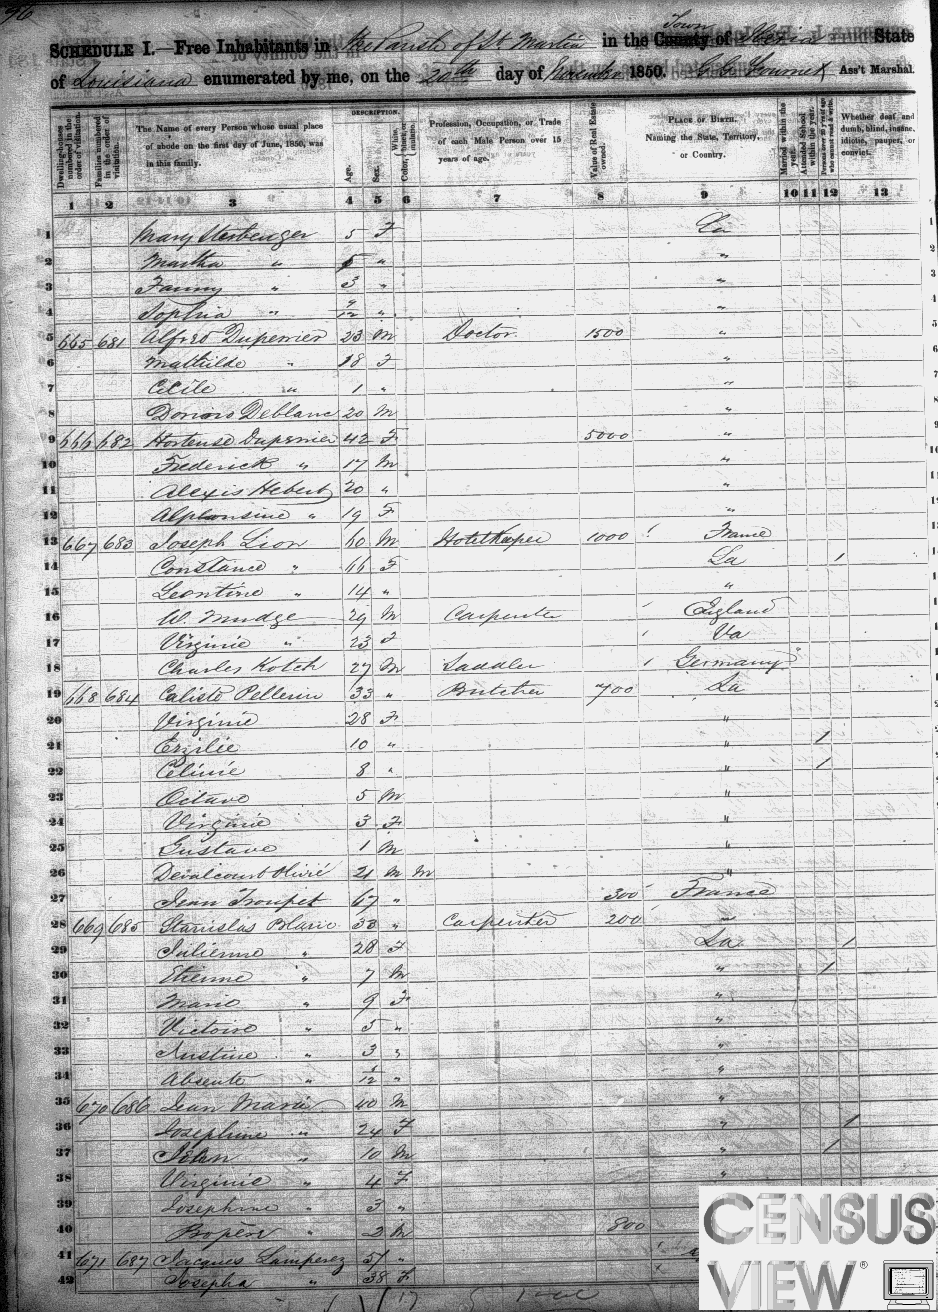 96
SCHEDULE I.—Free Inhabitants in the Parish of St Martin in the County Town of Iberia State
of Louisiana enumerated by me, on the 20th day of November 1850. Ass't Marshal.
Dwelling-houses numbered in the order of visitation. Families numbered in the order of visitation. The Name of every Person whose usual place of abode on the first day of June, 1850, was in this family. DESCRIPTION. Age. Sex. Color, White, black, or mulatto. Profession, Occupation, or Trade of each Male Person over 15 years of age. Value of Real Estate owned. PLACE OF BIRTH. Naming the State, Territory, or Country. Married within the year. Attended School within the year. Persons over 20 y'rs of age who cannot read & write. Whether deaf and dumb, blind, insane, idiotic, pauper, or convict.
1 2 3 4 5 6 7 8 9 10 11 12 13
1 Mary 5 F La
2 Martha " 5 " "
3 Fanny " 3 " "
4 Sophia " 9/12 " "
5 665 681 Alfred Duperrier 23 M Doctor 1500 "
6 Mathilde " 18 F "
7 Cecile " 1 " "
8 Deblanc 20 M "
9 666 682 Hortense Duperrier 42 F 5000 "
10 Frederick " 17 M "
11 Alexis Hebert 20 " "
12 Alphonsine " 19 F "
13 667 683 Joseph Lion 60 M Hotelkeeper 1000 France
14 Constance " 66 F La 1
15 Leontine " 14 " "
16 W. Mudge 29 M Carpenter England
17 Virginie " 23 F Va
18 Charles Kotch 27 M Saddler Germany
19 668 684 Caliste Pellerin 33 " Butcher 700 La
20 Virginie 28 F "
21 Erzilie 10 " " 1
22 Celinie 8 " " 1
23 Octave 5 M "
24 Virginie 3 F "
25 Gustave 1 M "
26 Devalcourt Olivié 21 M M "
27 Jean Troupet 67 " 300 France
28 669 685 Stanislas Blanc 33 " Carpenter 200 "
29 Julienne " 28 F La 1
30 Etienne " 7 M " 1
31 Marie " 9 F "
32 Victoire " 5 " "
33 Justine " 3 " "
34 Absente " 1/12 " "
35 670 686 Jean Marie 40 M "
36 Josephine " 24 F " 1
37 John " 10 M " 1
38 Virginie " 4 F "
39 Josephine " 3 "
40 " 2 M 800
41 671 687 Jacques Lamperez 51 "
42 Josepha " 38 F
CENSUS
VIEW®